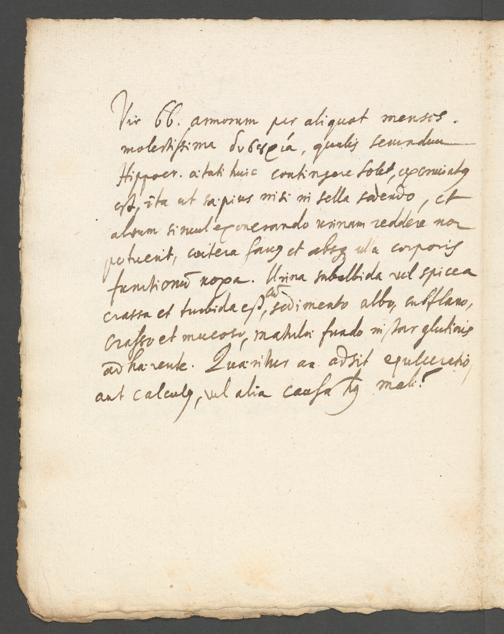 Vir 66. annorum per aliquot menses
molestissima δυσουρία, qualis secundum
Hippocr. ætati huic contingere solet, excruciatq
est, ita ut sæpius nisi in sella sedendo, et
alvum simul exonerando urinam reddere non
potuerit, cætera sanq et absq ulla corporis
functionū noxa. Urina subalbida vel spicea
crassa et turbida est, cū sedimento albo, subflavo,
crasso et mucoso, matulæ fundo instar glutinis
adhærente. Quæritur an adsit exulceratio,
aut calculq, vel alia causa hq mali?